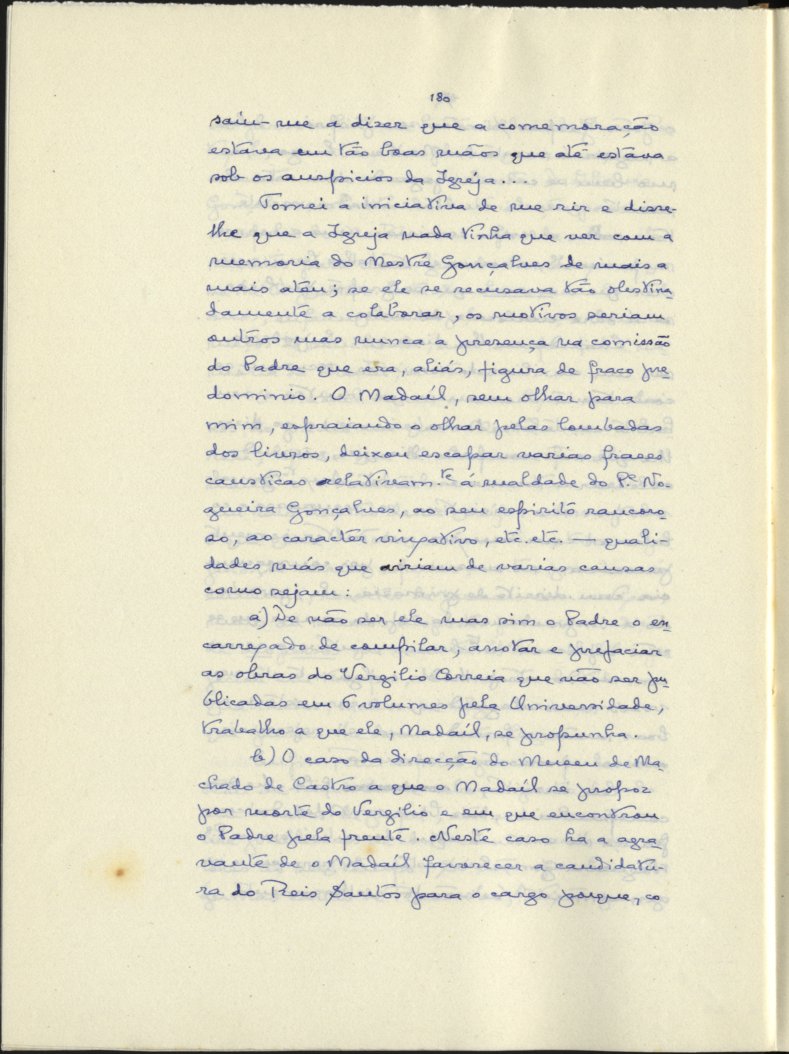 180
saíu-me a dizer que a comemoração
estava em tão boas mãos que até estava
sob os auspicios da Igreja...
Tomei a iniciativa de me rir e disse-
lhe que a Igreja nada tinha que ver com a
memoria do Mestre Gonçalves de mais a
mais ateu; se ele se recusava tão obstina-
damente a colaborar, os motivos seriam
outros mas nunca a presença na comissão
do Padre que era, aliás, figura de fraco pre-
dominio. O Madaíl, sem olhar para
mim, espraiando o olhar pelas lombadas
dos livros, deixou escapar varias frases
causticas relativam.te á maldade do P.e No-
gueira Gonçalves, ao seu espirito rancoro-
so, ao caracter vingativo, etc. etc. — quali-
dades más que viriam de varias causas
como sejam:
a) De não ser ele mas sim o Padre o en-
carregado de compilar, anotar e prefaciar
as obras do Vergilio Correia que vão ser pu-
blicadas em 6 volumes pela Universidade,
trabalho a que ele, Madaíl, se propunha.
b) O caso da direcção do Museu de Ma-
chado de Castro a que o Madaíl se propoz
por morte do Vergilio e em que encontrou
o Padre pela frente. Neste caso ha a agra-
vante de o Madaíl favorecer a candidatu-
ra do Reis Santos para o cargo porque, co